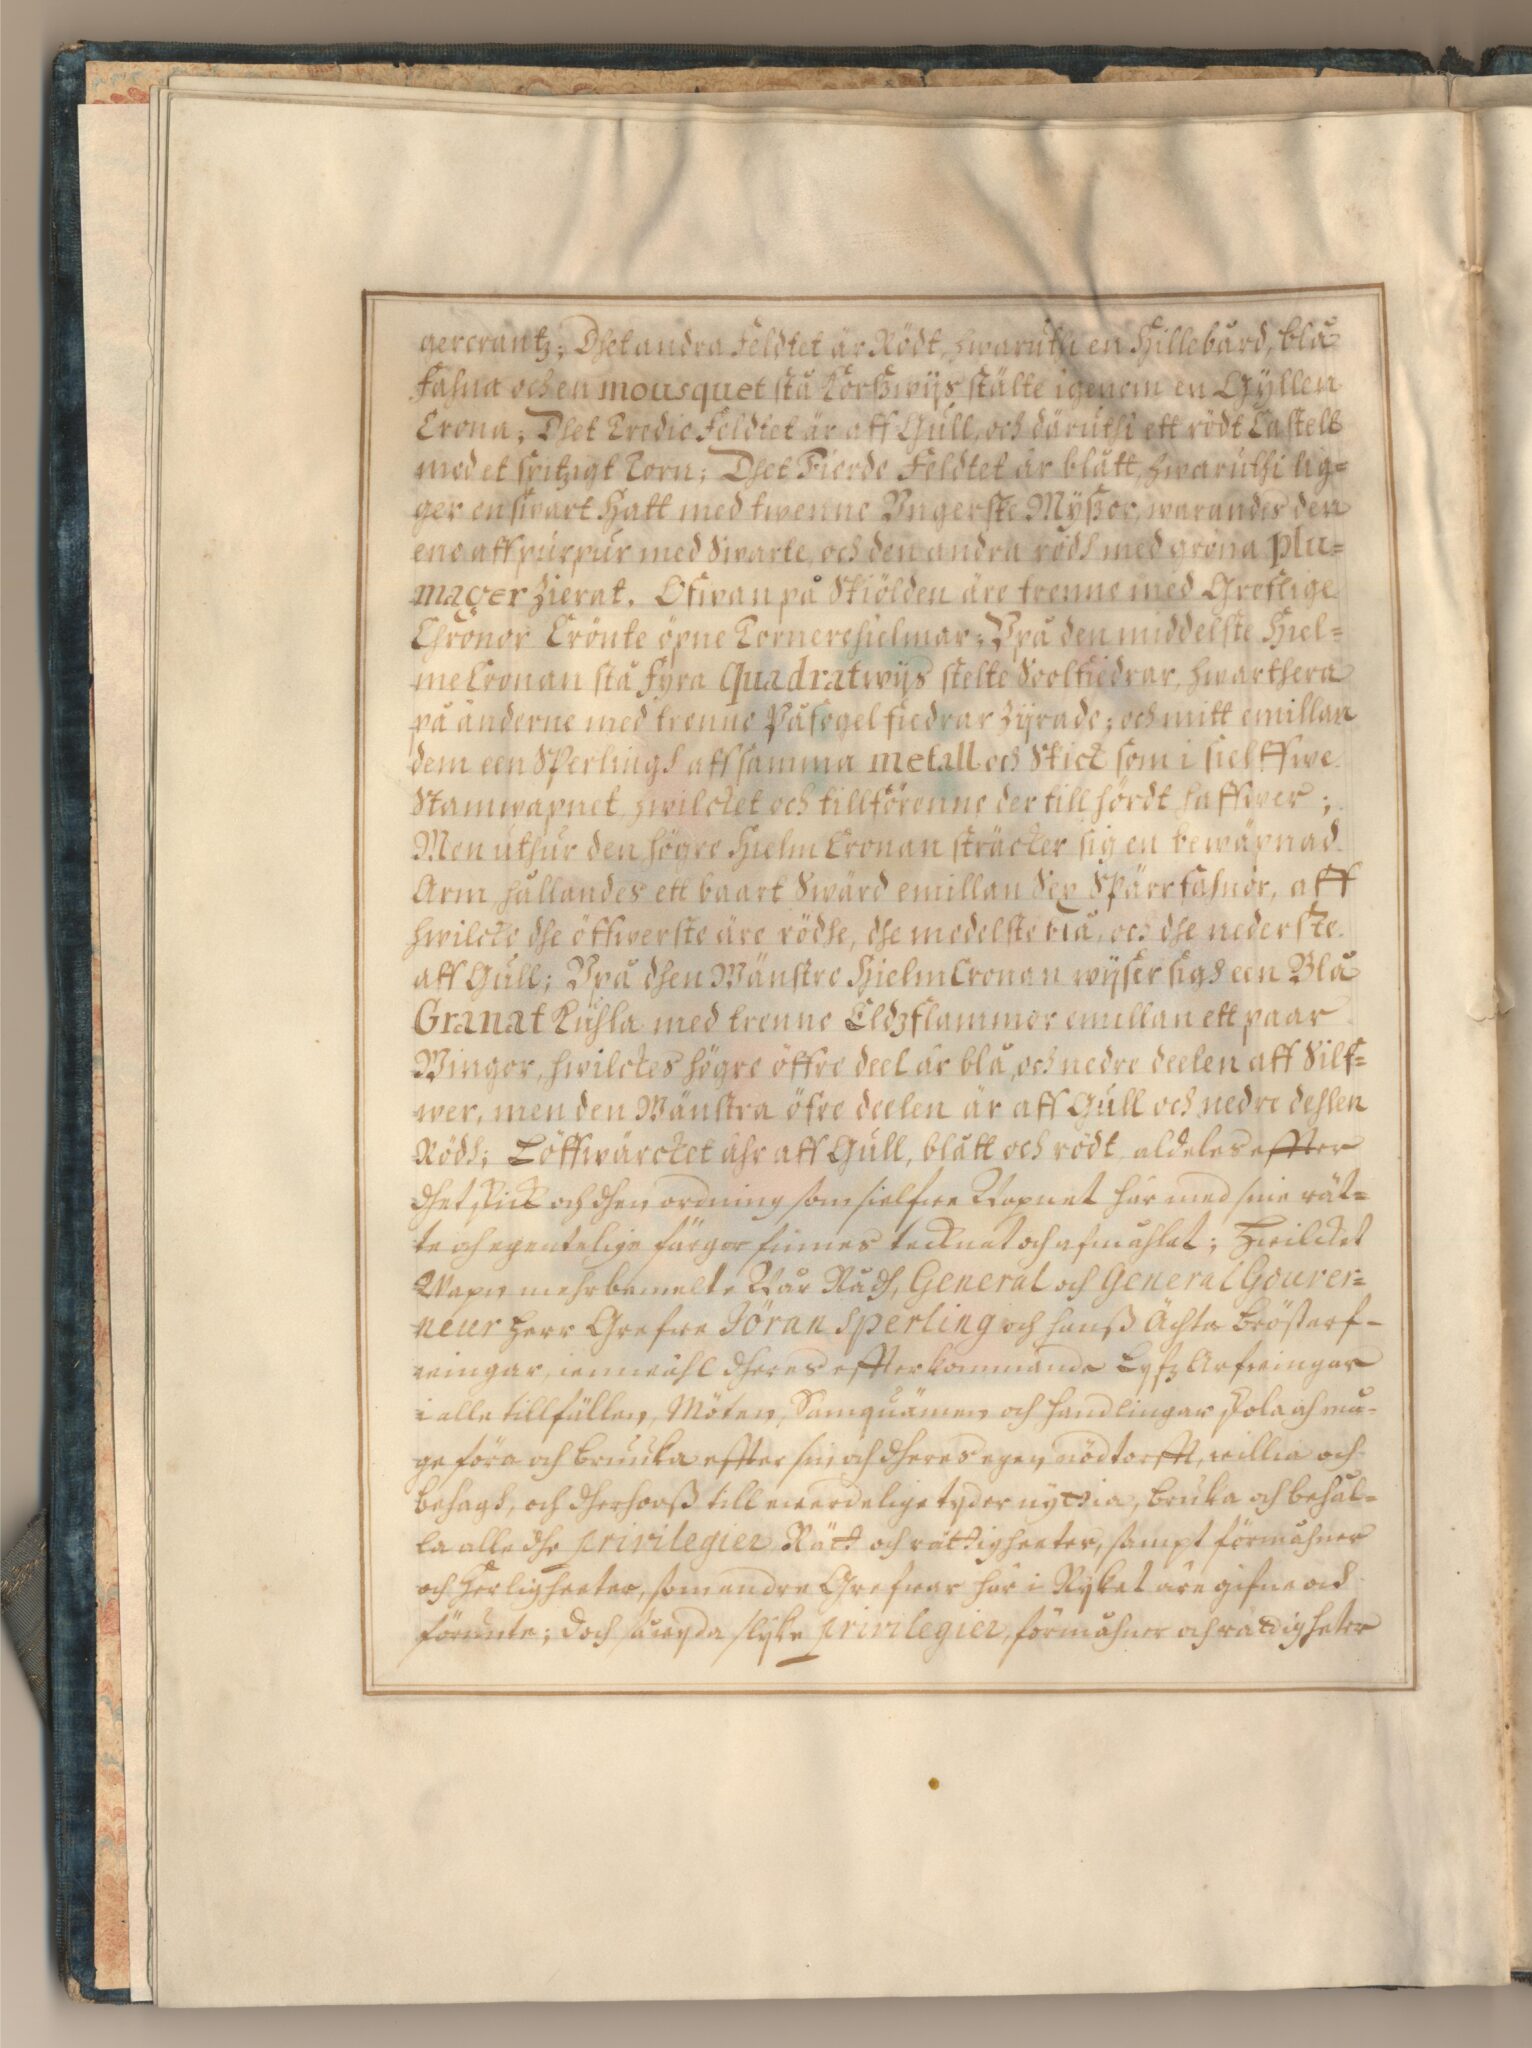 gercrantz; Dhet andra Feldtet är Rödt, hwaruthi en Hillebård, blå
Fahna och en mousquet stå Korßwijs stälte igenem en Gyllen
Crona; Dhet Tredie Feldtet är aff Gull, och däruthi ett rödt Castell
med et spitzigt Torn; Dhet Fierde Feldtet är blått, hwaruthi lig=
ger en swart Hatt med twenne Vngerske Myßor, warandes den
ene aff purpur med Swarte, och den andra rödh med grona plu=
mager Zierat. Ofwan på Skiölden äre trenne med Greflige
Chronor Crönte öpne Tornerehielmar; Vpå den middelste Hiel=
me Cronan stå Fyra Quadratwijs stelte Soolfiedrar, hwarthera
på änderne med trenne Påfogelfiedrar Zyrade; och mitt emillan
dem een Sperlingh aff samma metall och Skick som i sielffwe
Stamwapnet, hwilcket och tillförenne der till hördt haffwer;
Men uthur den högre Hielm Cronan sträcker sig en bewäpnad
Arm hållandes ett baart Swärd emillan Sex Spärrfahnor, aff
hwilcke dhe öffwerste äre rödhe, dhe medelste blå, och dhe nederste
aff Gull; Vpå dhen Wänstre Hielm Cronan wijser sigh een Blå
Granat Kuhla med trenne Eldzflammor emillan ett paar
Wingor, hwilckes högre öffre deel är blå, och nedre deelen aff Silf=
wer, men den Wänstra öfre deelen är aff Gull och nedre dehlen
Rödh; Löffwärcket ähr aff Gull, blått och rödt, aldeles effter
dhet skick och dhen ordning som sielfwe Wapnet här med sine rät=
te och egentelige färgor finnes tecknat och afmåhlat; Hwilcket
Wapn mehrbemelte Wår Rådh, General och General Gouver=
neur Herr Grefwe Jöran Sperling och hanß Ächta Bröstarf-
wingar, iemwähl dheres effterkommande Lyfz Arfwingar
i alle tillfällen, Möten, Samquämen och handlingar skola och mu-
ge föra och bruuka effter sin och dheres egen nödtorfft, willia och
behagh, och dherhooß till ewerdelige tyder nyttia, bruka och behål=
la alle dhe privilegier, Rätt och rättigheeter, sampt förmåhner
och Herligheeter, som andre Grefwar här i Ryket äre gifne och
förunte; doch så wyda slyke privilegier, förmåhner och rättigheter